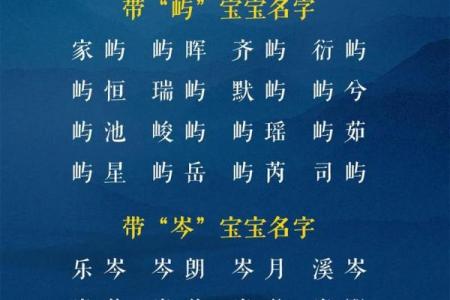 带“屿”宝宝名字
家屿 屿晖 齐屿 衍屿
屿恒 瑞屿 默屿 屿兮
屿池 峻屿 屿瑶 屿茹
屿星 屿岳 屿芮 司屿
带“岑”宝宝名字
乐岑 岑朗 岑月 溪岑